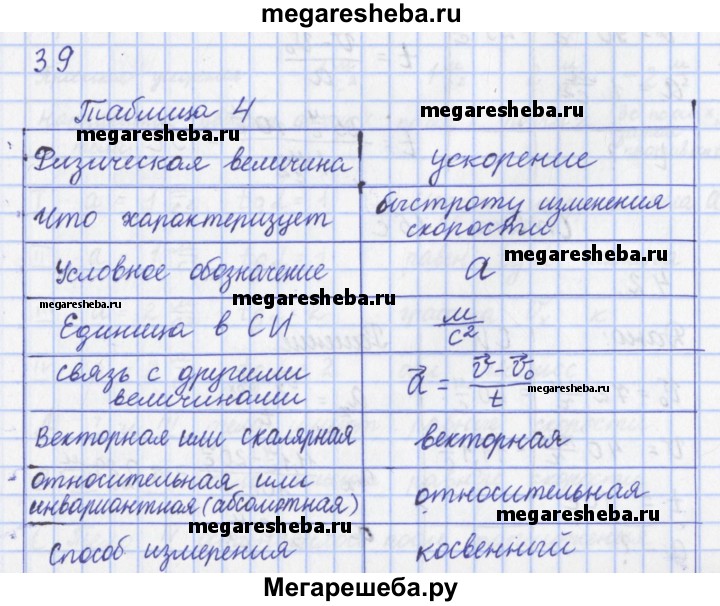 megaresheba.ru
39
Таблица 4
megaresheba.ru
megaresheba.ru
Физическая величина ускорение
Что характеризует быстроту изменения скорости
megaresheba.ru
Условное обозначение a
megaresheba.ru
megaresheba.ru
Единица в СИ м/с²
связь с другими величинами a⃗ = (v⃗ - v⃗₀)/t
megaresheba.ru
Векторная или скалярная векторная
относительная или инвариантная (абсолютная) относительная
megaresheba.ru
megaresheba.ru
Способ измерения косвенный
Мегарешеба.ру